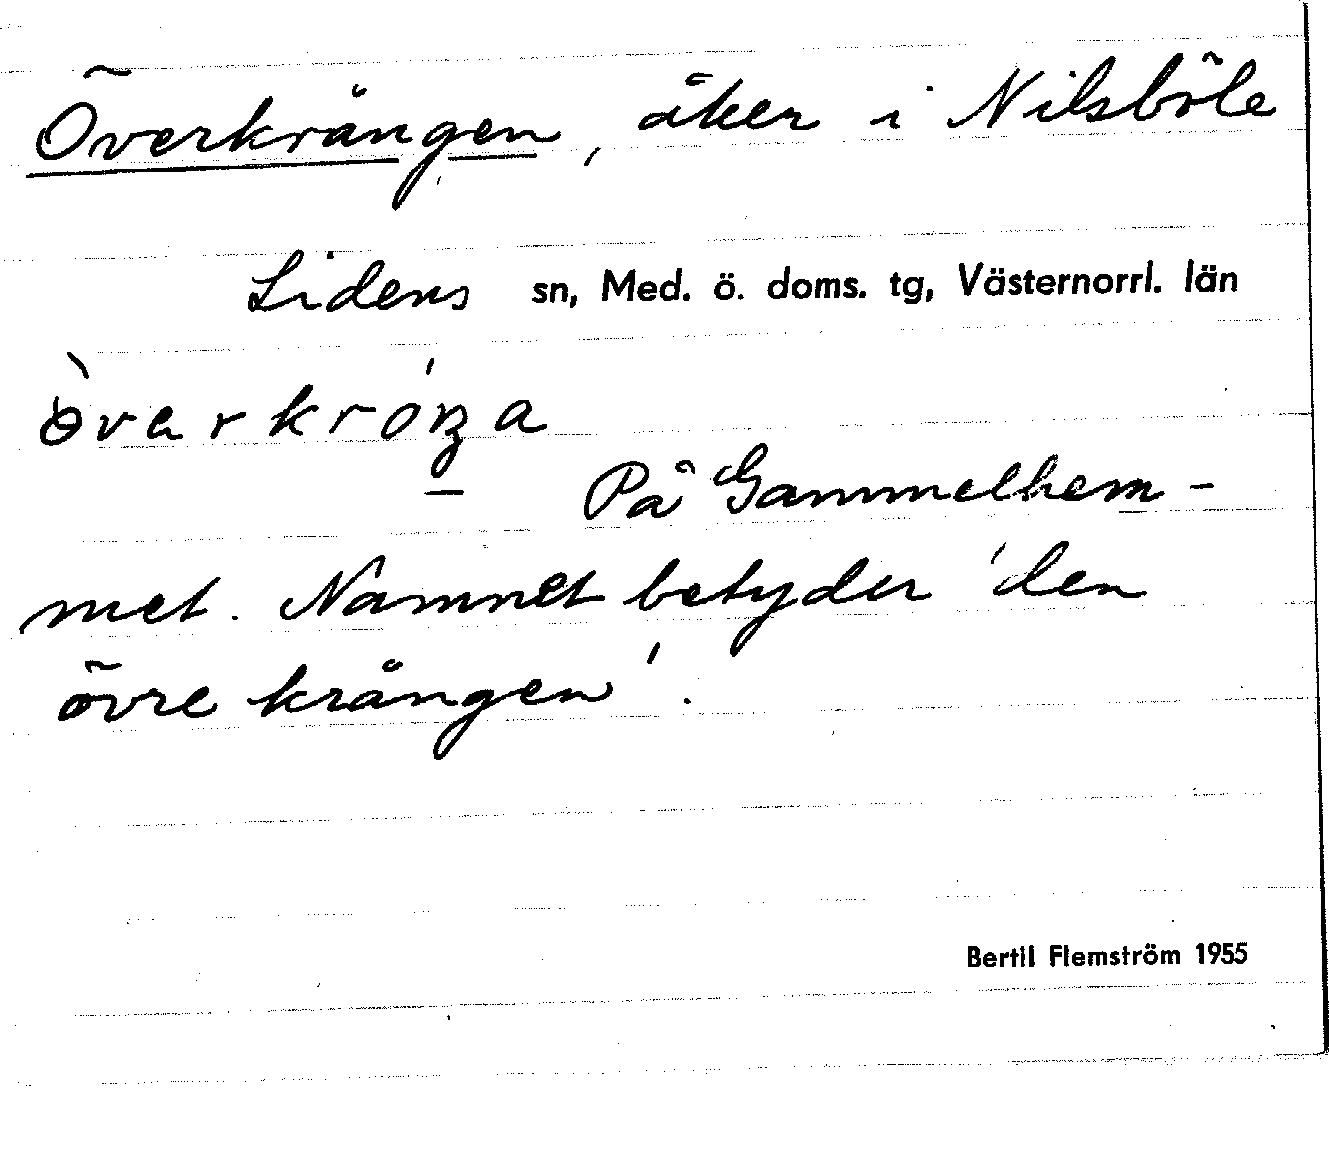 Överkrången, åker i Nilsböle
Lidens sn, Med. ö. doms. tg, Västernorrl. län
ɵ̀varkróŋa
På Gammelhem-
met. Namnet betyder 'den
övre krången'.
Bertil Flemström 1955